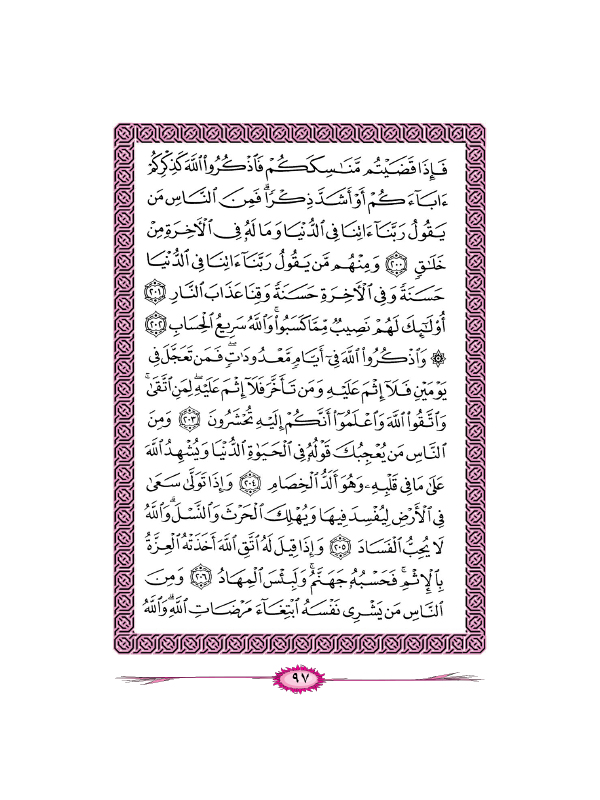 فَإِذَا قَضَيْتُم مَّنَٰسِكَكُمْ فَٱذْكُرُوا۟ ٱللَّهَ كَذِكْرِكُمْ
ءَابَآءَكُمْ أَوْ أَشَدَّ ذِكْرًا ۗ فَمِنَ ٱلنَّاسِ مَن
يَقُولُ رَبَّنَآ ءَاتِنَا فِى ٱلدُّنْيَا وَمَا لَهُۥ فِى ٱلْءَاخِرَةِ مِنْ
خَلَٰقٍ ٢٠٠ وَمِنْهُم مَّن يَقُولُ رَبَّنَآ ءَاتِنَا فِى ٱلدُّنْيَا
حَسَنَةً وَفِى ٱلْءَاخِرَةِ حَسَنَةً وَقِنَا عَذَابَ ٱلنَّارِ ٢٠١
أُو۟لَٰٓئِكَ لَهُمْ نَصِيبٌ مِّمَّا كَسَبُوا۟ ۚ وَٱللَّهُ سَرِيعُ ٱلْحِسَابِ ٢٠٢
۞ وَٱذْكُرُوا۟ ٱللَّهَ فِىٓ أَيَّامٍ مَّعْدُودَٰتٍ ۚ فَمَن تَعَجَّلَ فِى
يَوْمَيْنِ فَلَآ إِثْمَ عَلَيْهِ وَمَن تَأَخَّرَ فَلَآ إِثْمَ عَلَيْهِ ۚ لِمَنِ ٱتَّقَىٰ ۗ
وَٱتَّقُوا۟ ٱللَّهَ وَٱعْلَمُوٓا۟ أَنَّكُمْ إِلَيْهِ تُحْشَرُونَ ٢٠٣ وَمِنَ
ٱلنَّاسِ مَن يُعْجِبُكَ قَوْلُهُۥ فِى ٱلْحَيَوٰةِ ٱلدُّنْيَا وَيُشْهِدُ ٱللَّهَ
عَلَىٰ مَا فِى قَلْبِهِۦ وَهُوَ أَلَدُّ ٱلْخِصَامِ ٢٠٤ وَإِذَا تَوَلَّىٰ سَعَىٰ
فِى ٱلْأَرْضِ لِيُفْسِدَ فِيهَا وَيُهْلِكَ ٱلْحَرْثَ وَٱلنَّسْلَ ۗ وَٱللَّهُ
لَا يُحِبُّ ٱلْفَسَادَ ٢٠٥ وَإِذَا قِيلَ لَهُ ٱتَّقِ ٱللَّهَ أَخَذَتْهُ ٱلْعِزَّةُ
بِٱلْإِثْمِ ۚ فَحَسْبُهُۥ جَهَنَّمُ ۚ وَلَبِئْسَ ٱلْمِهَادُ ٢٠٦ وَمِنَ
ٱلنَّاسِ مَن يَشْرِى نَفْسَهُ ٱبْتِغَآءَ مَرْضَاتِ ٱللَّهِ ۗ وَٱللَّهُ
٩٧